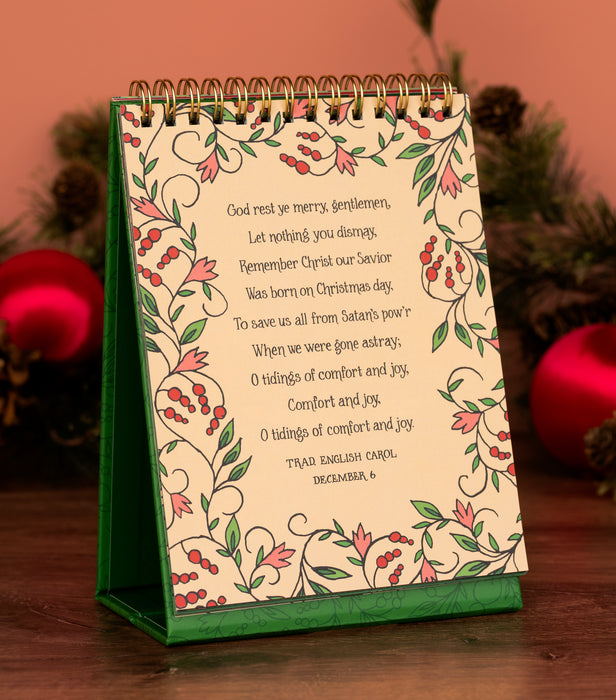 God rest ye merry, gentlemen,
Let nothing you dismay,
Remember Christ our Savior
Was born on Christmas day,
To save us all from Satan's pow'r
When we were gone astray;
O tidings of comfort and joy,
Comfort and joy,
O tidings of comfort and joy.
TRAD. ENGLISH CAROL
DECEMBER 6